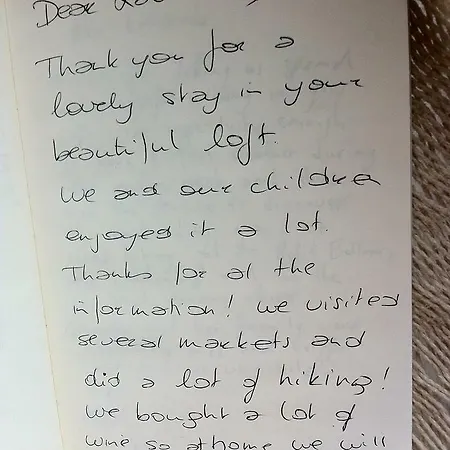 Dear
Thank you for a
lovely stay in your
beautiful loft.
We and our children
enjoyed it a lot.
Thanks for al the
information! We visited
several markets and
did a lot of hiking!
We bought a lot of
wine so at home we will